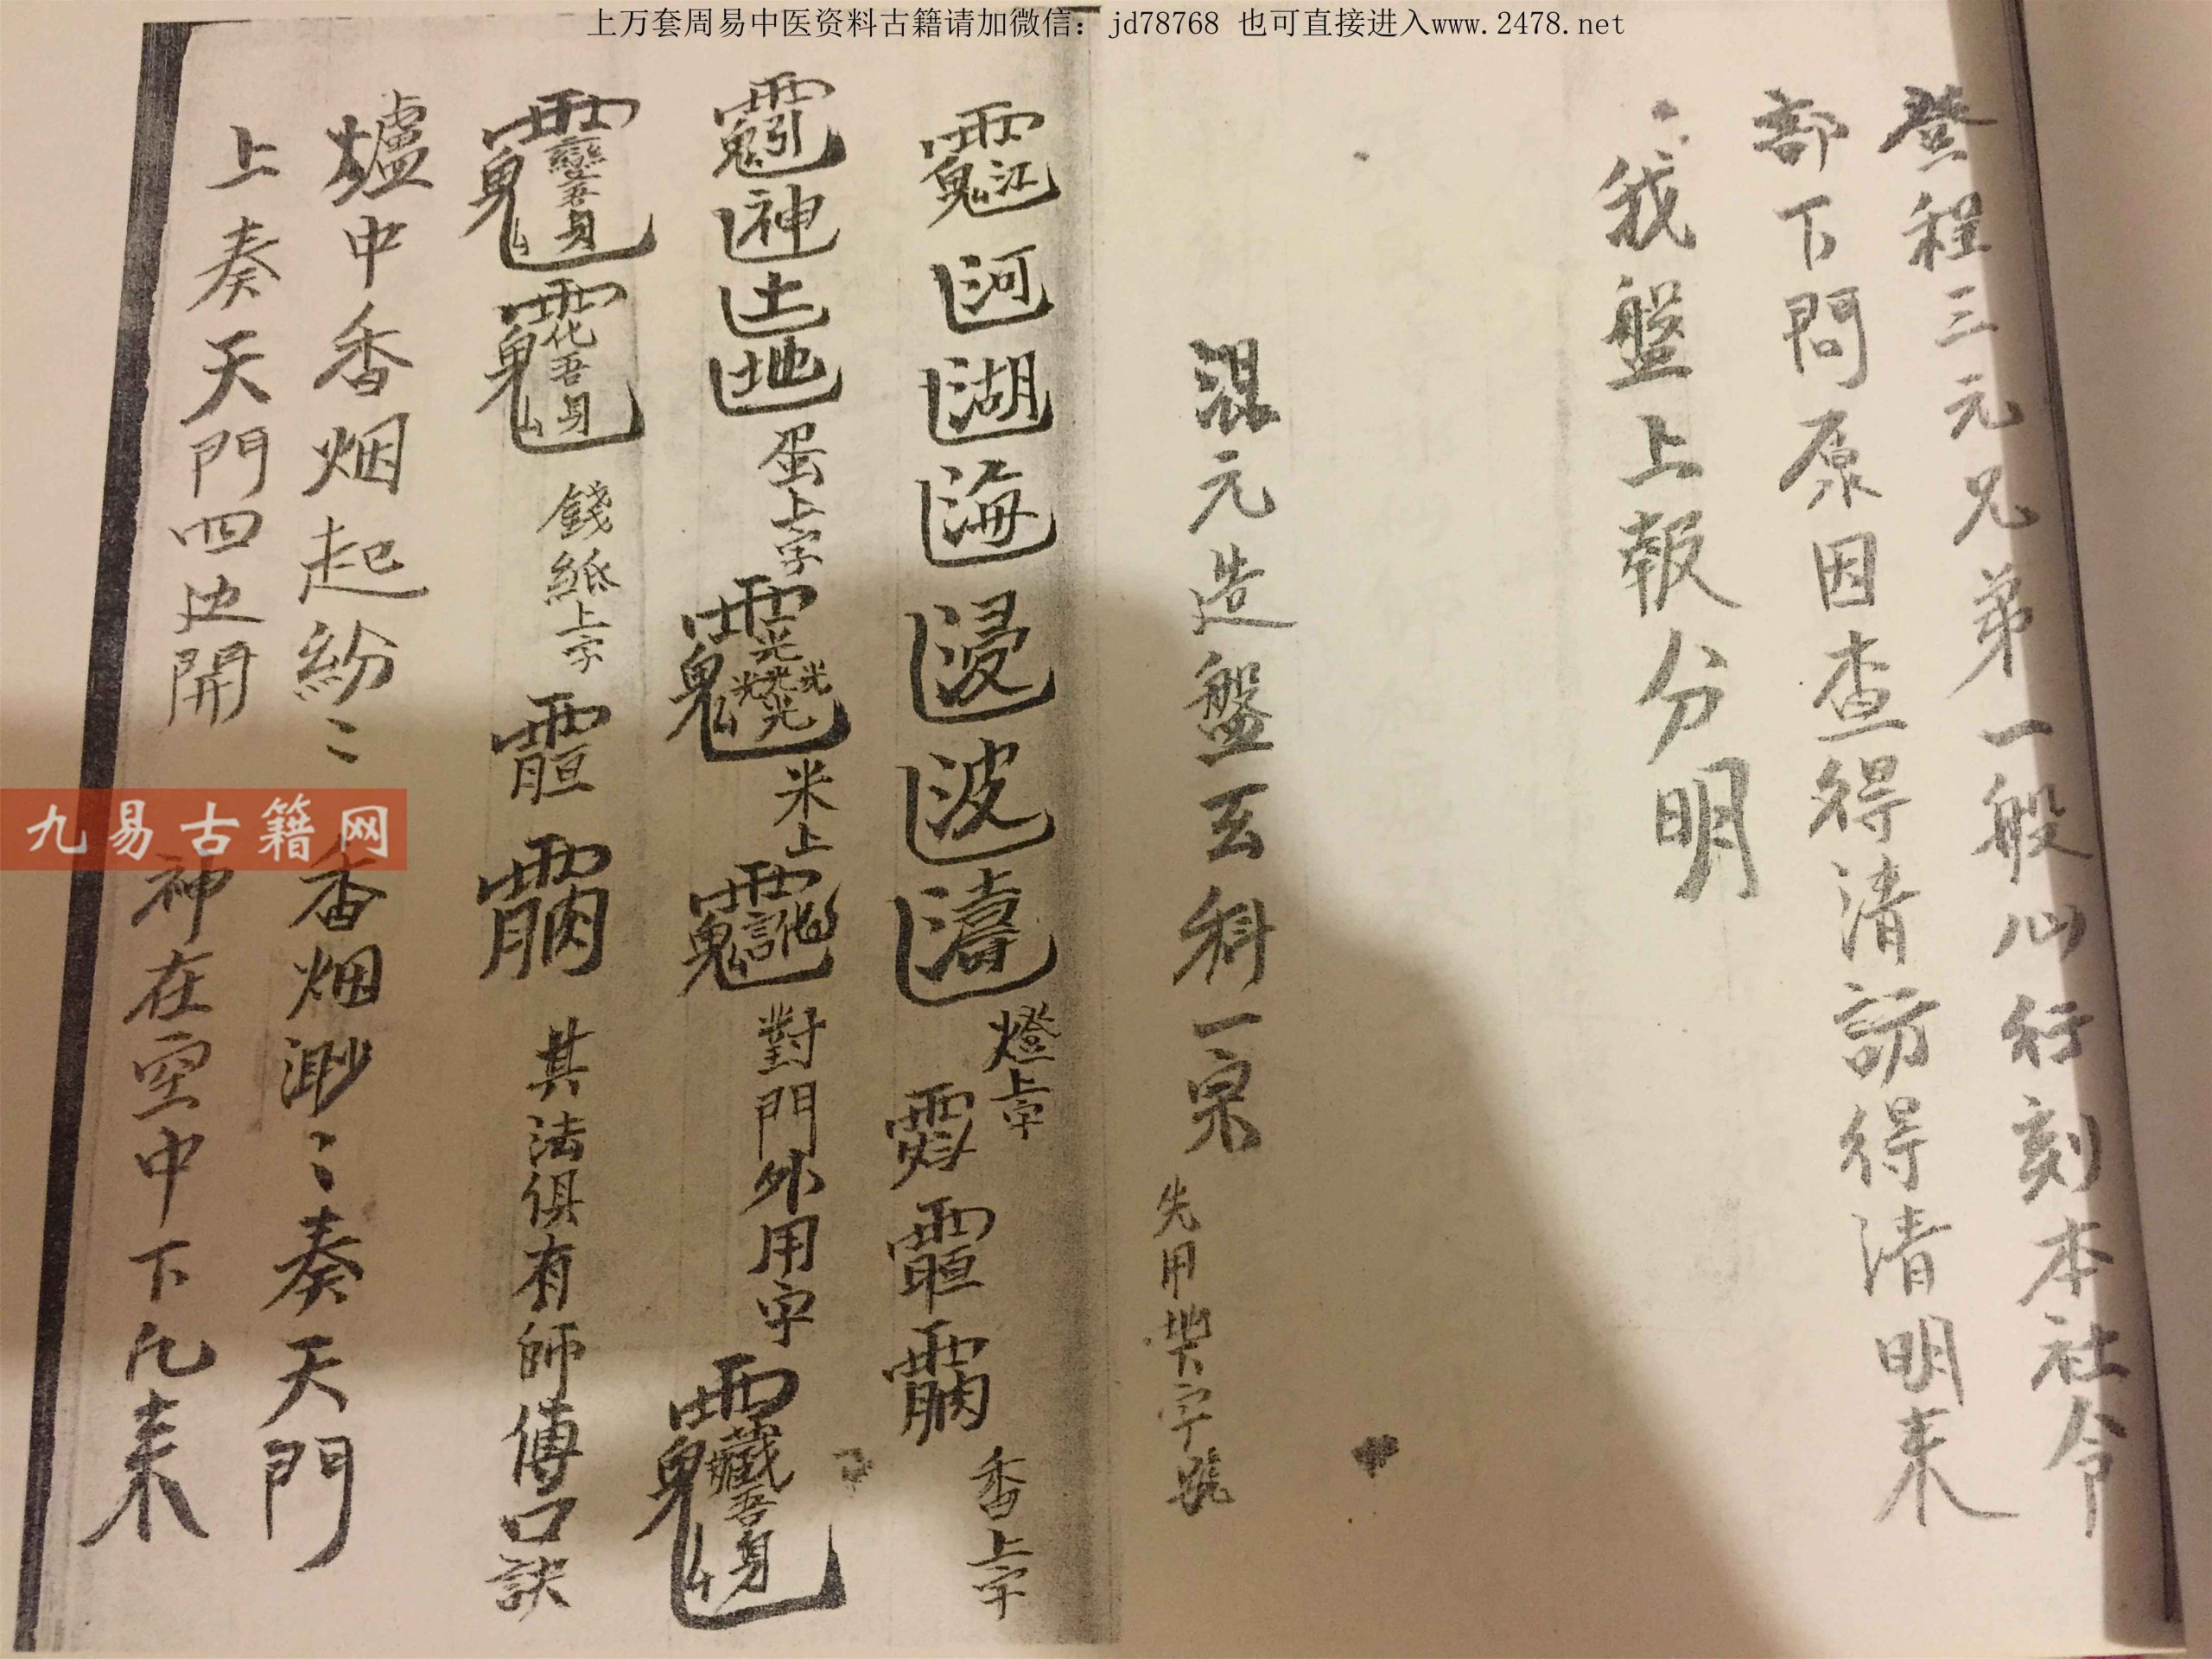 上万套周易中医资料古籍请加微信：jd78768 也可直接进入www.2478.net
登程三元兄弟一般仙行刻本社令
部下問原因查得清訪得清明来
我盤上報分明
混元造盤玄科一宗 先用 字號
江 河 湖 海 浸 波 燈上字 香上字
引 神 土 地 蛋上字 光光光光光 米上 對門外用字 藏吾身
變吾身 化吾身 錢紙上字 其法俱有師傅口訣
爐中香烟起紛〻 香烟渺〻奏天門
上奏天門四边開 神在空中下凡来
九易古籍网